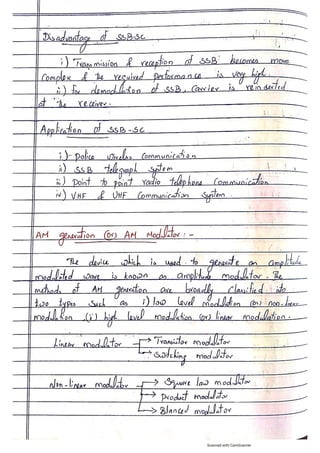 Disadvantage of SSB-SC
i) Transmission & reception of SSB becomes more
complex & the required performance is very high.
ii) For demodulation of SSB, Carrier is reinserted
at the receiver.
Application of SSB-SC
i) Police wireless Communication
ii) SSB telegraph system
iii) Point to point radio telephone Communication
iv) VHF & UHF Communication system.
AM generation (or) AM Modulator :-
The device which is used to generate an amplitude
modulated wave is known as amplitude modulator. The
methods of AM generation are broadly classified into
two types such as i) low level modulation (or) non-linear
modulation (i) high level modulation (or) linear modulation.
Linear modulator → Transistor modulator
→ Switching modulator
Non-linear modulator → Square law modulator
→ Product modulator
→ Blanced modulator
Scanned with CamScanner